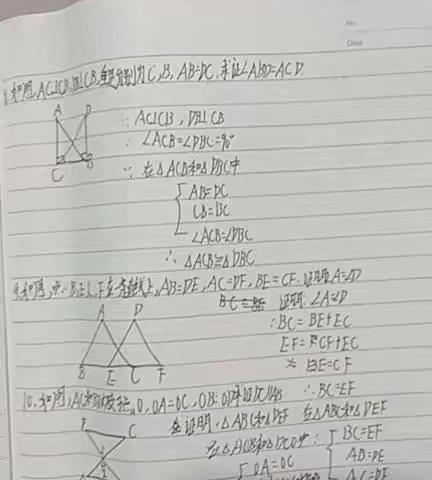 No.
Date
8.如图,AC⊥CB,DB⊥CB,垂足分别为C,B, AB=DC,求证∠ABD=ACD
A D
C B
∵ AC⊥CB, DB⊥CB
∴ ∠ACB=∠DBC=90°
∵ 在△ACB和△DBC中
AB=DC
CB=BC
∠ACB=∠DBC
∴ △ACB≌△DBC
9.如图,点B,E,C,F在一条直线上,AB=DE,AC=DF,BE=CF.证明A=∠D
A D
B E C F
证明 ∠A=∠D
∵BC=BE+EC
EF=CF+EC
BE=CF
∴BC=EF
10.如图,AC和BD相交于点O,OA=OC,OB=OD求证DC//AB
D C
在证明.△ABC和△DEF 在△ABC和△DEF
在△AOB和△DCO中
OA=OC
BC=EF
AB=DE
AC=DF